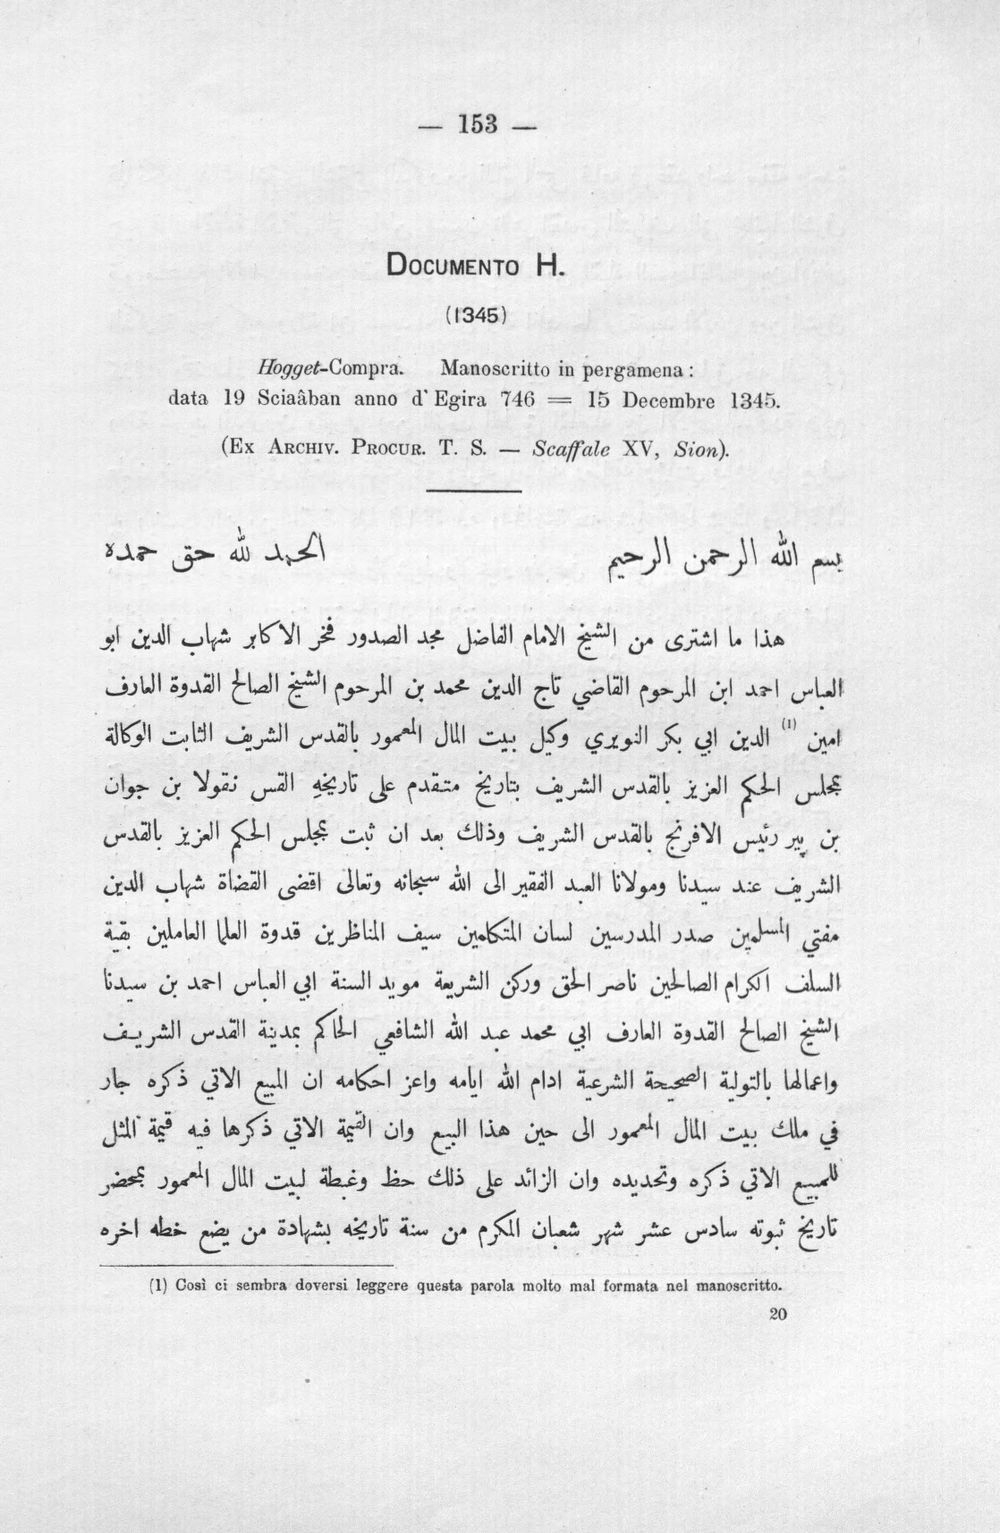 — 153 —
DOCUMENTO H.
(1345)
Hogget-Compra. Manoscritto in pergamena :
data 19 Sciaâban anno d' Egira 746 = 15 Decembre 1345.
(EX ARCHIV. PROCUR. T. S. — Scaffale XV, Sion).
بسم الله الرحمن الرحيم الحمد لله حق حمده
هذا ما اشترى من الشيخ الامام الفاضل مجد الصدور فخر الاكابر شهاب الدين ابو
العباس احمد ابن المرحوم القاضي تاج الدين محمد بن المرحوم الشيخ الصالح القدوة العارف
امين (1) الدين ابي بكر النويري وكيل بيت المال المعمور بالقدس الشريف الثابت الوكالة
بمجلس الحكم العزيز بالقدس الشريف بتاريخ متقدم على تاريخهِ القس نقولا بن جوان
بن پير رئيس الافرنج بالقدس الشريف وذلك بعد ان ثبت بمجلس الحكم العزيز بالقدس
الشريف عند سيدنا ومولانا العبد الفقير الى الله سبحانه وتعالى اقضى القضاة شهاب الدين
مفتي المسلمين صدر المدرسين لسان المتكلمين سيف المناظرين قدوة العلما العاملين بقية
السلف الكرام الصالحين ناصر الحق وركن الشريعة مويد السنة ابي العباس احمد بن سيدنا
الشيخ الصالح القدوة العارف ابي محمد عبد الله الشافعي الحاكم بمدينة القدس الشريف
واعمالها بالتولية الصحيحة الشرعية ادام الله ايامه واعز احكامه ان المبيع الاتي ذكره جار
في ملك بيت المال المعمور الى حين هذا البيع وان القيمة الاتي ذكرها فيه قيمة المثل
للمبيع الاتي ذكره وتحديده وان الزائد على ذلك حظ وغبطة لبيت المال المعمور بمحضر
تاريخ ثبوته سادس عشر شهر شعبان المكرم من سنة تاريخه بشهادة من يضع خطه اخره
(1) Così ci sembra doversi leggere questa parola molto mal formata nel manoscritto.
20